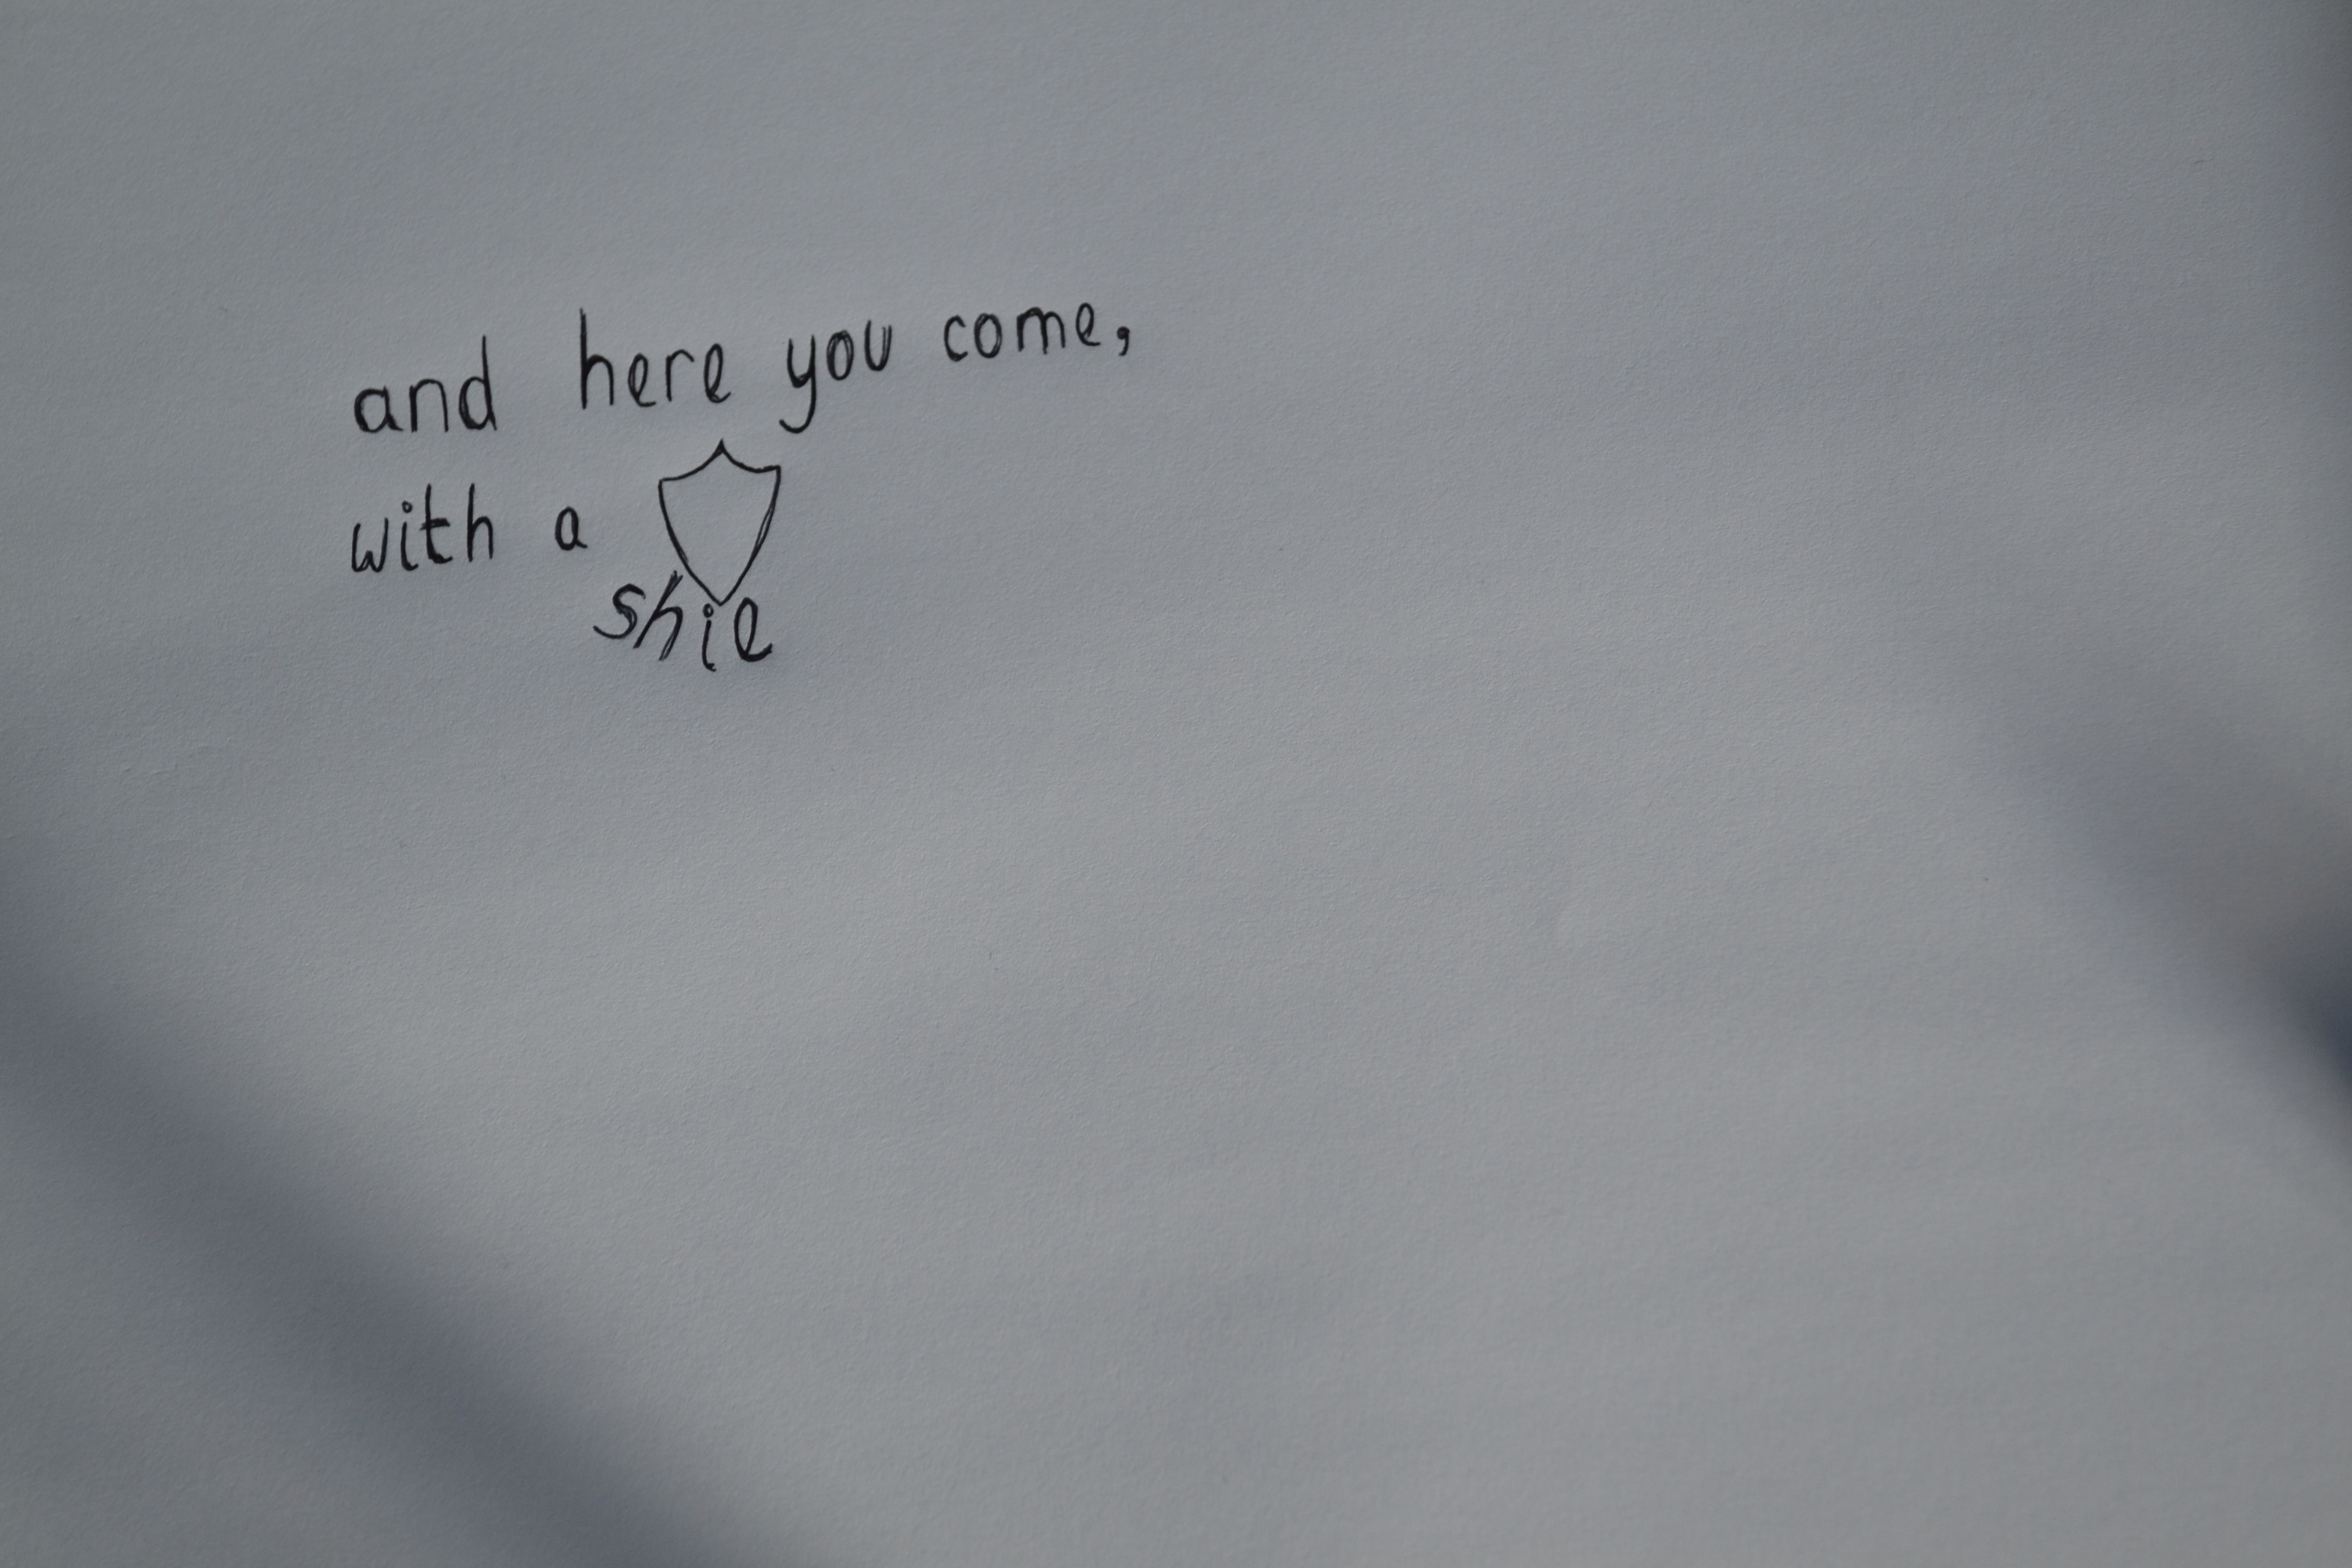 and here you come,
with a
shie